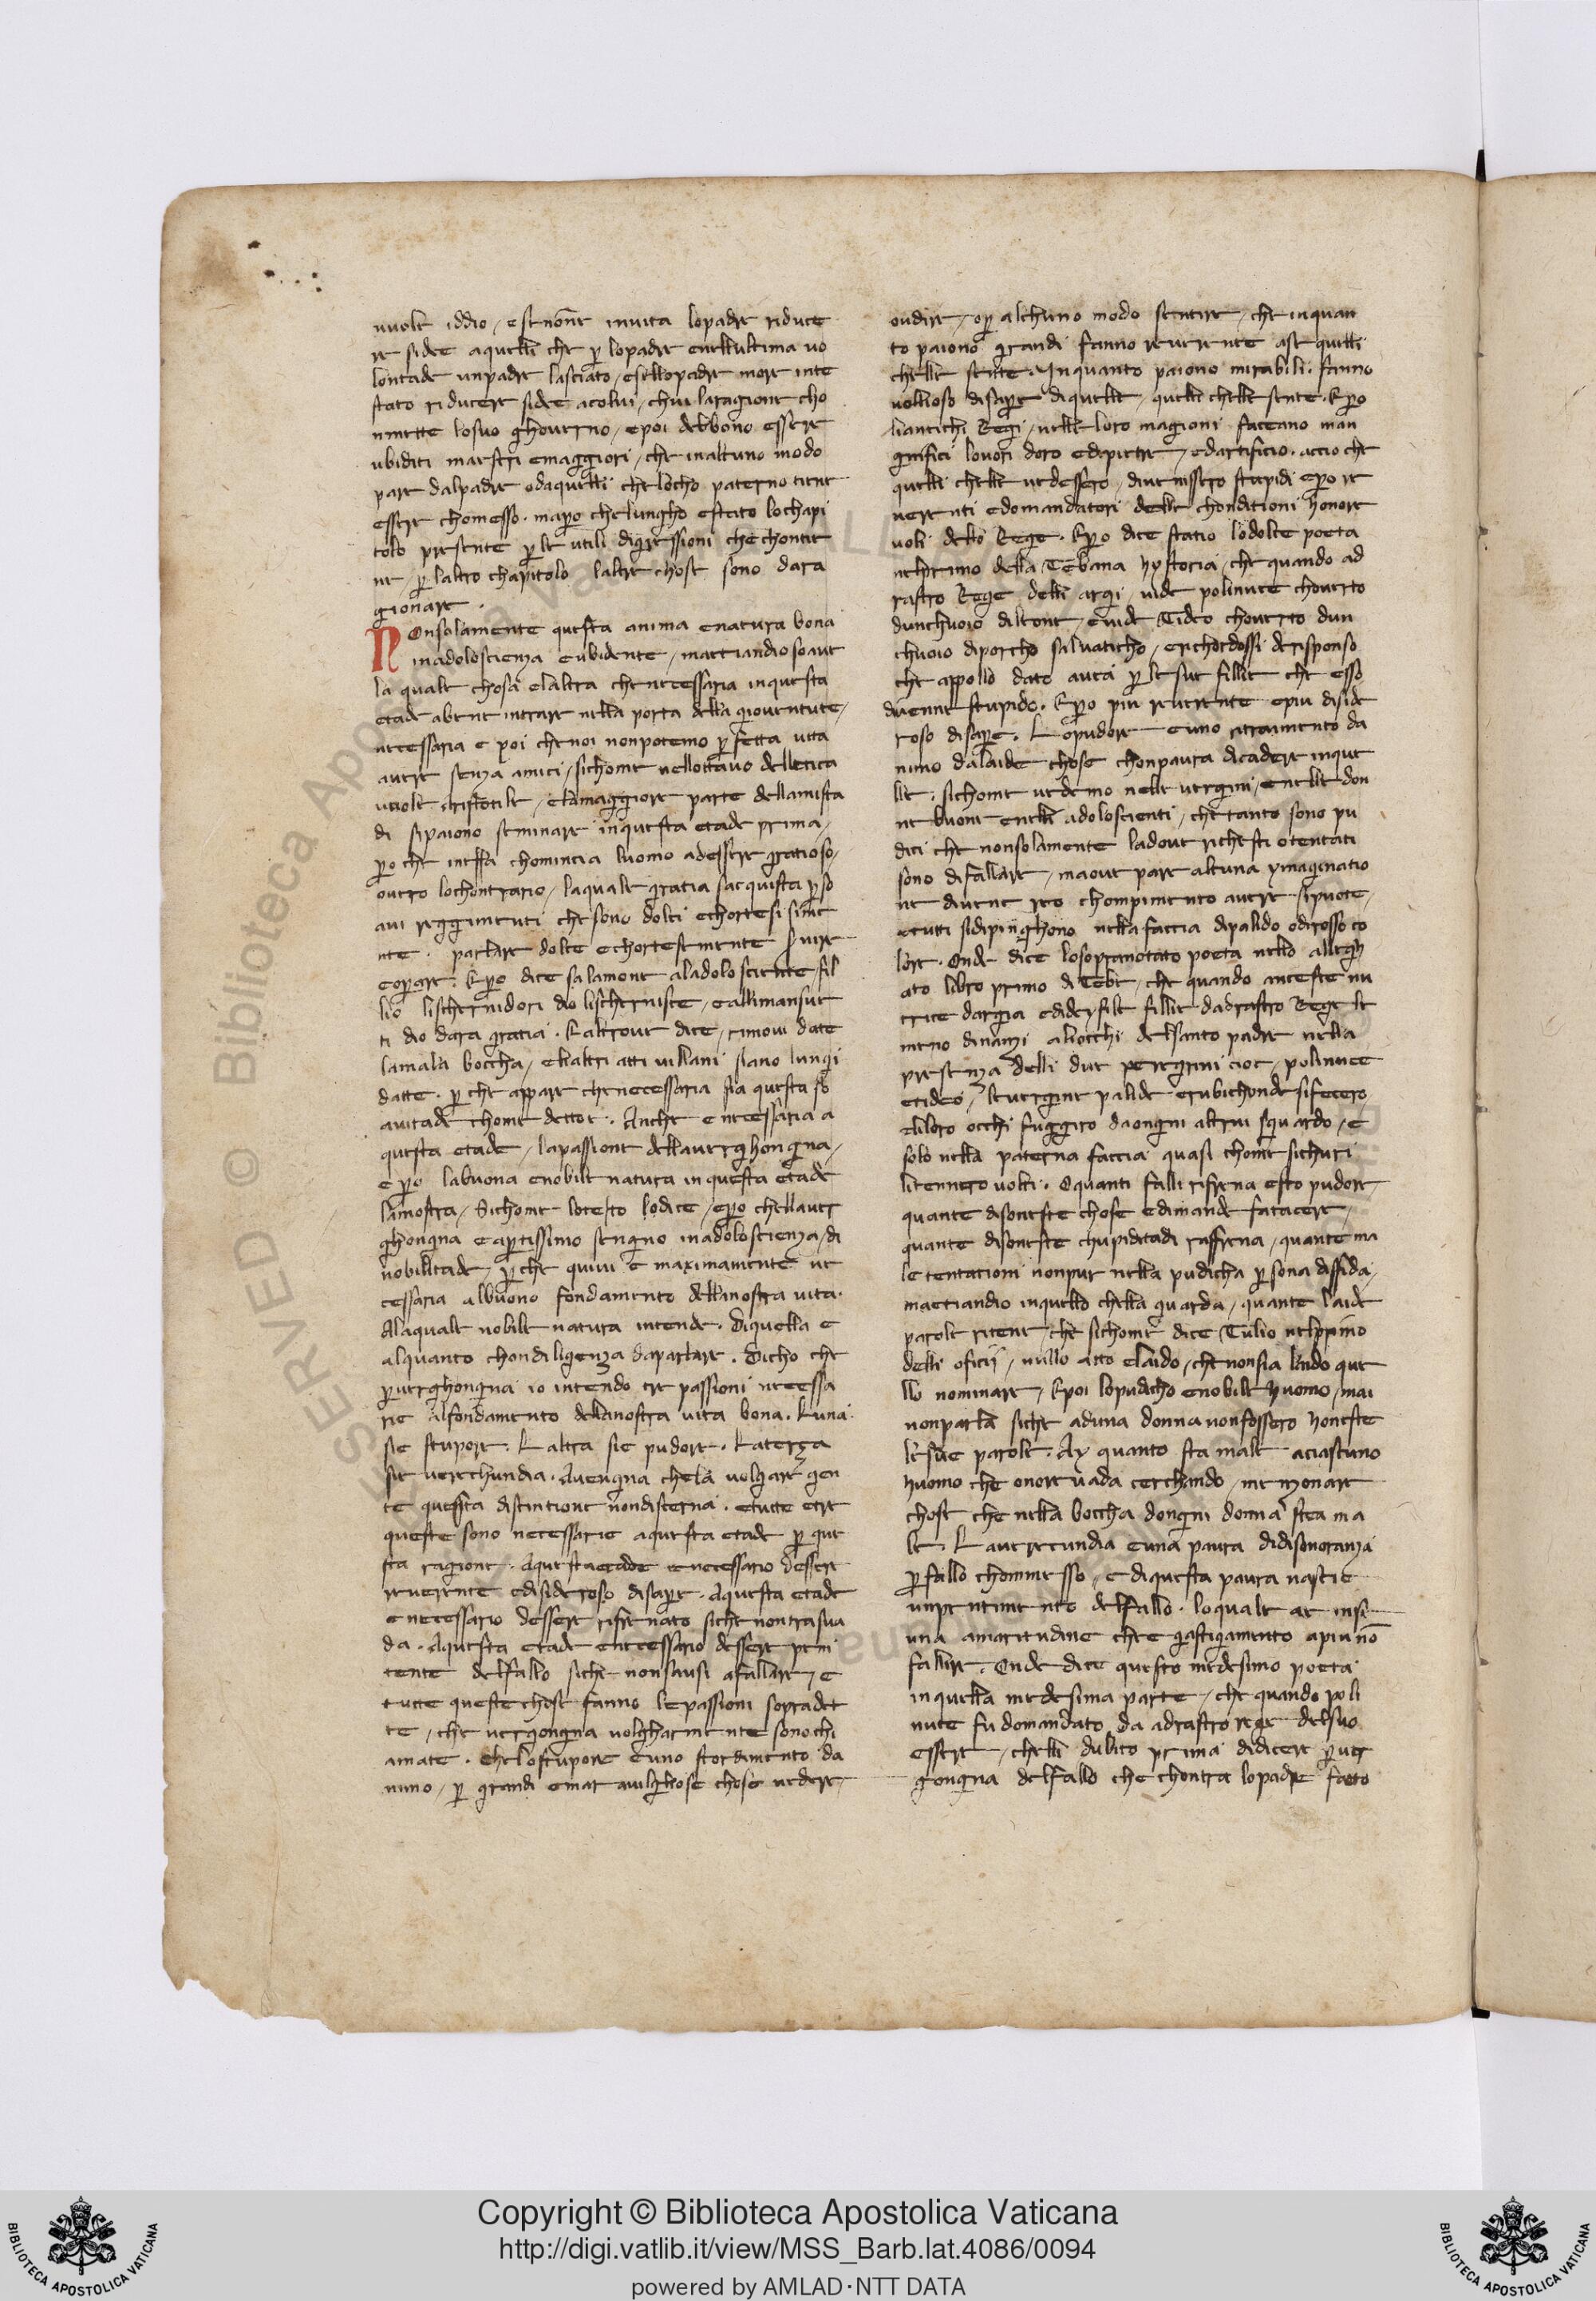 nuole iddio / esenone inuita lopadre riduce
re sidee aquelli che per lopadre enellultima uo
lontade unpadre lasciato / esellopadre more inte
stato riducere sidee acolui / chui laragione cho
nmette losuo ghouerno / epoi debbono essere
ubiditi maestri emaggiori / che inalcuno modo
pare dalpadre odaquelli chelocho paterno tiene
essere chomesso . mapero chelungho estato lochapi
tolo presente per le utili digressioni che chontie
ne / per laltro chapitolo laltre chose sono dara
gionare .
Nonsolamente questa anima enatura bona
inadoloscienza eubidente / maetiandio soaue
la quale chosa elaltra chenecessaria inquesta
etade abene intrare nella porta della giouentute /
necessaria e poi chenoi nonpotemo perfetta uita
auere senza amici / sichome nellottauo delletica
uuole aristotile / elamaggiore parte dellamista
di sipaiono seminare inquesta etade prima /
pero che inessa chomincia luomo adessere gratioso /
ouero lochontrario / laquale gratia sacquista per so
aui reggimenti che sono dolci echortesi sime
nte . parlare dolce echortesemente seruire
eoperare . Epero dice salamone aladoloscente / fil
lio lischernidori dio lischernisce / eallimansue
ti dio dara gratia . Ealtroue dice / rimoui date
lamala boccha / elialtri atti uillani siano lungi
datte . per che appare chenecessaria sia questa so
auitade chome dettoe . Anche enecessaria a
questa etade / lapassione dellauerghongna /
e pero labuona enobile natura in questa etade
lamostra / Sichome lotesto lodice / epero chellauer
ghongna e apertissimo sengno inadoloscienza / di
nobilitade / per che quiui e maximamente ne
cessaria albuono fondamento dellanostra uita .
Alaquale nobile natura intende . Diquella e
alquanto chondiligenza daparlare . Dicho che
peruerghongna io intendo tre passioni necessa
rie alfondamento dellanostra uita bona . Luna
sie stupore . Laltra sie pudore . Laterza
sie uerechundia . Auengna chela volgare gen
te questa distintione nondiscerna . etutte etre
queste sono necessarie aquesta etade per que
sta ragione . Aquestaetade enecessario dessere
reuerente edisideroso disapere . Aquesta etade
enecessario dessere rifrenato sichenontrasua
da . Aquesta etade enecessario dessere peni
tente delfallo siche nonsausi afallare / e
tutte queste chose fanno lepassioni sopradet
te / che uergongna uolgharmente sono chi
amate . Chelostupore euno stordimento da
nimo / per grandi emarauilgliose chose uedere /
oudire / oper alchuno modo sentire / che inquan
to paiono grandi fanno reuerente ase quelli
chelle sente . Inquanto paiono mirabili . fanno
uollioso disapere diquelle / quelli chelle sente . Epero
liantichi Regi / nelle loro magioni faceano man
gnifici lauori doro edipietre / edartificio . accio che
quelli chelle uedessero / diuenissero stupidi epero re
uerenti edomandatori delle chonditioni honore
uoli dello Rege . Epero dice statio lodolce poeta
nelprimo della Tebana hystoria / che quando ad
rastro Rege delli argi / uide polinice chouerto
dunchuoio dileone / euide Tideo chouerto dun
chuoio diporcho saluaticho / erichordossi derisponso
che appollo dato auea per lesue fillie che esso
diuenne stupido . Epero piu reuerente epiu diside
roso disapere . Lopudore euno ritraimento da
nimo dalaide chose chonpaura dicadere inque
lle . sichome uedemo nelle uergini / enelle don
ne buone enelli adoloscienti / che tanto sono pu
dici che nonsolamente ladoue richesti otentati
sono difallare / maoue pare alcuna ymaginatio
ne diuene reo chompimento auere sipuote /
etutti sidipinghono nella faccia dipalido odirosso co
lore . Onde dice losopranotato poeta nello allegh
ato libro primo di Tebe / che quando aceste nu
trice dargia edideyfile fillie dadrastro Rege le
meno dinanzi aliocchi delsanto padre nella
presenza delli due peregrini cioe / polinice
etideo / leuergine palide erubichonde sifecero
elloro occhi fuggiro daongni altrui sguardo / e
solo nella paterna faccia quasi chome sichuri
litennero uolti . Oquanti falli rifrena esto pudore /
quante disoneste chose edimande fatacere /
quante disoneste chupiditadi raffrena / quante ma
le tentationi nonpur nella pudicha persona diffida /
maetiandio inquello chella guarda / quante laide
parole ritene / che sichome dice Tulio nelprimo
delli oficii / nullo atto elaido / che nonsia laido que
llo nominare / Epoi lopudicho enobile huomo / mai
nonparla siche aduna donna nonfossero honeste
lesue parole . Ay quanto sta male aciascuno
huomo che onore uada cerchando / menzonare
chose che nella boccha dongni donna stea ma
le . Lauerecundia euna paura didisonoranza
per fallo chommesso / e diquesta paura nascie
unpentimento delfallo . loquale ae inse
una amaritudine chee gastigamento apiu no
fallire . Onde dice questo medesimo poeta
inquella medesima parte / che quando poli
nice fu domandato da adrastro rege delsuo
essere / chelli dubito prima didicere peruer
gongna delfallo che chontra lopadre fatto
Copyright © Biblioteca Apostolica Vaticana
http://digi.vatlib.it/view/MSS_Barb.lat.4086/0094
powered by AMLAD·NTT DATA